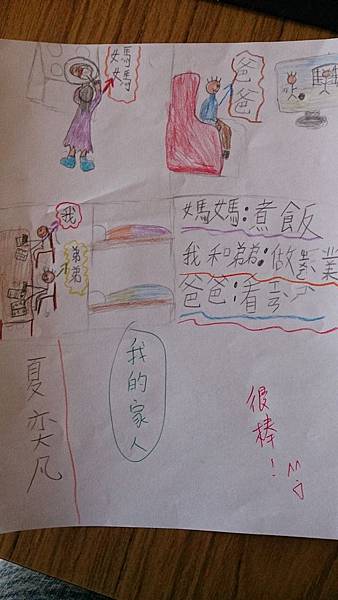 媽媽
爸爸
我
弟弟
媽媽:煮飯
我和弟弟:做業
爸爸:看
我的家人
夏奕凡
很棒!